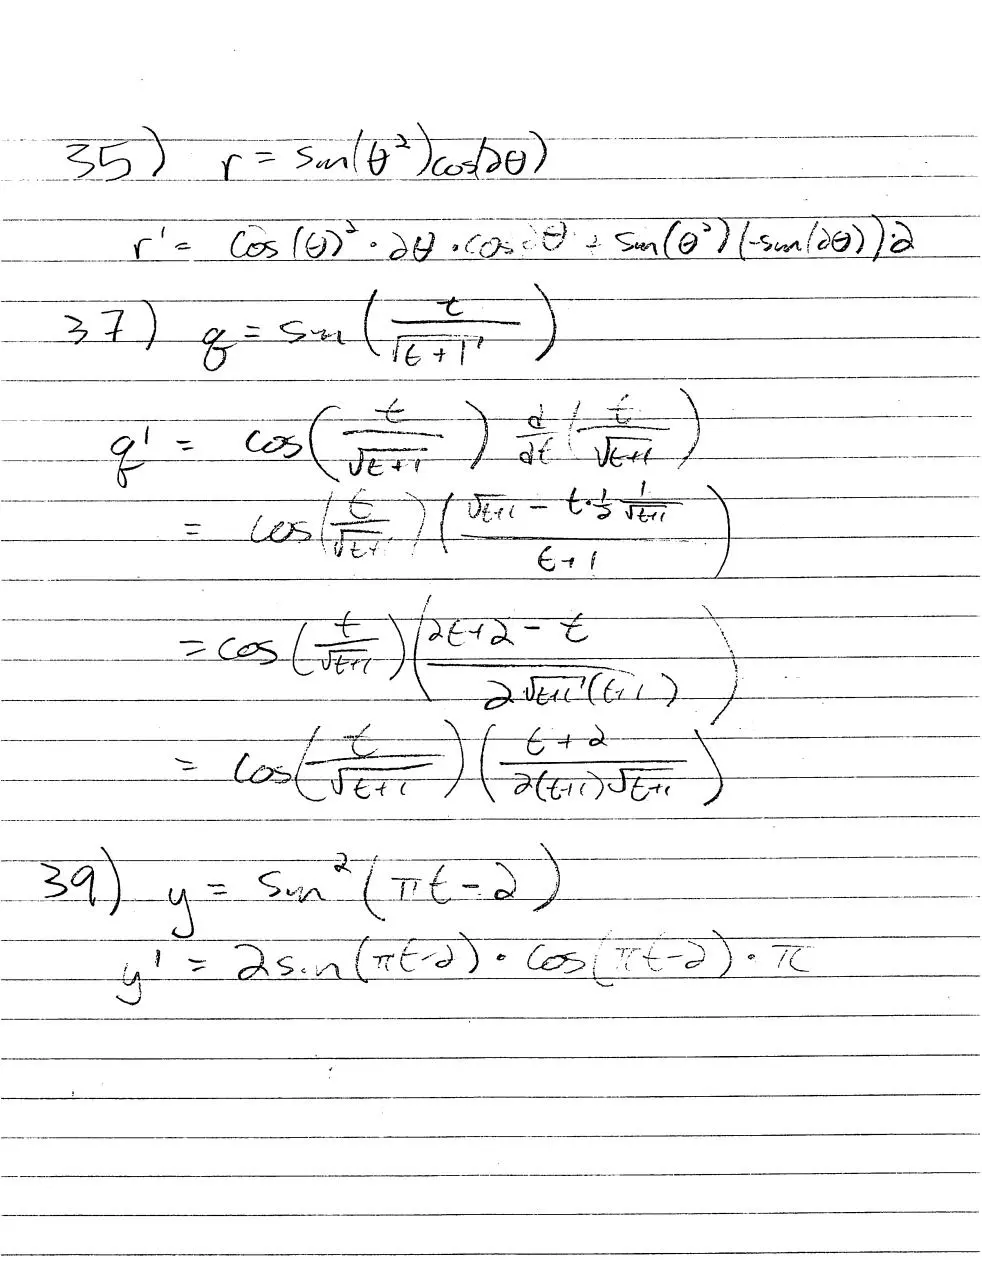 35) r = sin(θ²)cos(2θ)
r' = cos(θ)² · 2θ · cos 2θ + sin(θ²)(-sin(2θ))·2
37) q = sin(t/√(t+1))
q' = cos(t/√(t+1)) d/dt (t/√(t+1))
= cos(t/√(t+1)) ((√(t+1) - t·1/2 1/√(t+1))/(t+1))
= cos(t/√(t+1)) ((2t+2 - t)/(2√(t+1)(t+1)))
= cos(t/√(t+1)) ((t+2)/(2(t+1)√(t+1)))
39) y = sin²(πt-2)
y' = 2sin(πt-2) · cos(πt-2) · π